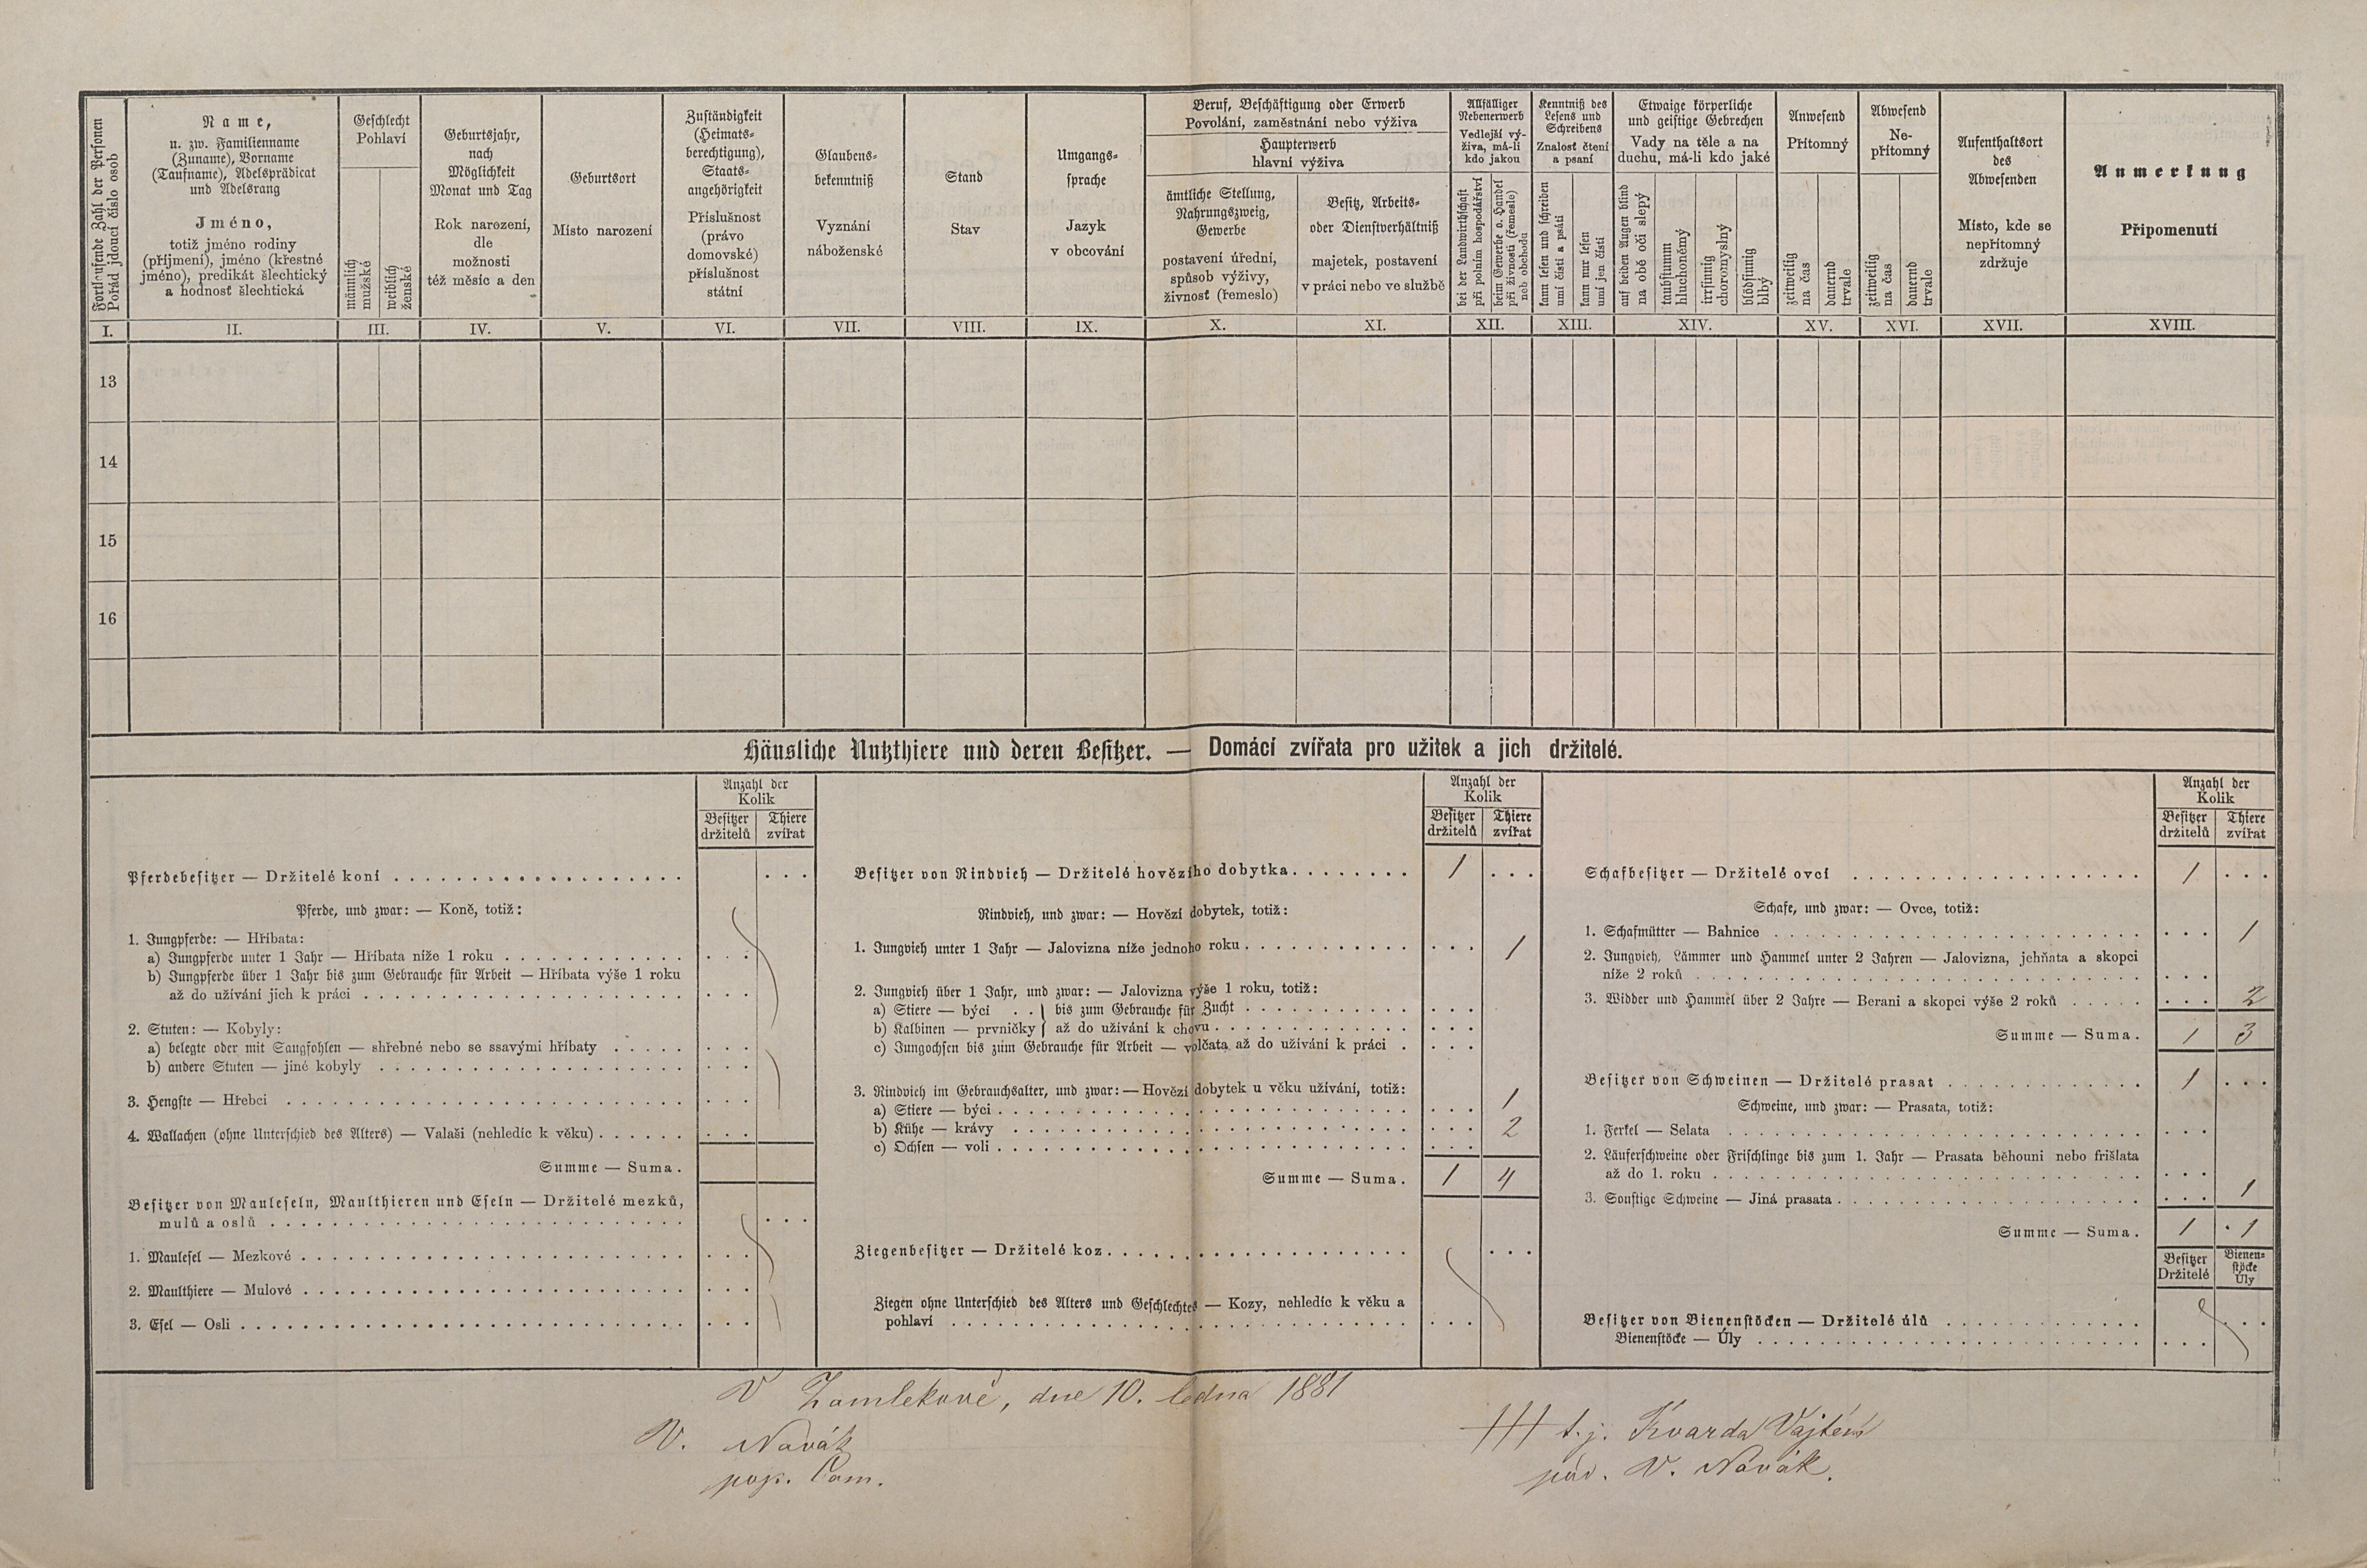 Fortlaufende Zahl der Personen
Pořád jdoucí číslo osob
Name,
u. zw. Familienname
(Zuname), Vorname
(Taufname), Adelsprädicat
und Adelsrang
Jméno,
totiž jméno rodiny
(příjmení), jméno (křestné
jméno), predikát šlechtický
a hodnosť šlechtická
Geschlecht
Pohlaví
männlich
mužské
weiblich
ženské
Geburtsjahr,
nach
Möglichkeit
Monat und Tag
Rok narození,
dle
možnosti
též měsíc a den
Geburtsort
Místo narození
Zuständigkeit
(Heimats-
berechtigung),
Staats-
angehörigkeit
Příslušnost
(právo
domovské)
příslušnost
státní
Glaubens-
bekenntniß
Vyznání
náboženské
Stand
Stav
Umgangs-
sprache
Jazyk
v obcování
Beruf, Beschäftigung oder Erwerb
Povolání, zaměstnání nebo výživa
Haupterwerb
hlavní výživa
ämtliche Stellung,
Nahrungszweig,
Gewerbe
postavení úřední,
spůsob výživy,
živnosť (řemeslo)
Besitz, Arbeits-
oder Dienstverhältniß
majetek, postavení
v práci nebo ve službě
Allfälliger
Nebenerwerb
Vedlejší vý-
živa, má-li
kdo jakou
bei der Landwirthschaft
při polním hospodářství
beim Gewerbe o. Handel
při živnosti (řemeslo)
neb obchodu
Kenntniß des
Lesens und
Schreibens
Znalosť čtení
a psaní
kann lesen und schreiben
umí čísti a psáti
kann nur lesen
umí jen čísti
Etwaige körperliche
und geistige Gebrechen
Vady na těle a na
duchu, má-li kdo jaké
auf beiden Augen blind
na obě oči slepý
taubstumm
hluchoněmý
irrsinnig
choromyslný
blödsinnig
blbý
Anwesend
Přítomný
zeitweilig
na čas
dauernd
trvale
Abwesend
Ne-
přítomný
zeitweilig
na čas
dauernd
trvale
Aufenthaltsort
des
Abwesenden
Místo, kde se
nepřítomný
zdržuje
Anmerkung
Připomenutí
I. II. III. IV. V. VI. VII. VIII. IX. X. XI. XII. XIII. XIV. XV. XVI. XVII. XVIII.
13
14
15
16
Häusliche Nutzthiere und deren Besitzer. — Domácí zvířata pro užitek a jich držitelé.
Anzahl der
Kolik
Besitzer
držitelů
Thiere
zvířat
Pferdebesitzer — Držitelé koní
Pferde, und zwar: — Koně, totiž:
1. Jungpferde: — Hříbata:
a) Jungpferde unter 1 Jahr — Hříbata níže 1 roku
b) Jungpferde über 1 Jahr bis zum Gebrauche für Arbeit — Hříbata výše 1 roku
až do užívání jich k práci
2. Stuten: — Kobyly:
a) belegte oder mit Saugfohlen — shřebné nebo se ssavými hříbaty
b) andere Stuten — jiné kobyly
3. Hengste — Hřebci
4. Wallachen (ohne Unterschied des Alters) — Valaši (nehledíc k věku)
Summe — Suma.
Besitzer von Mauleseln, Maulthieren und Eseln — Držitelé mezků,
mulů a oslů
1. Maulesel — Mezkové
2. Maulthiere — Mulové
3. Esel — Osli
Anzahl der
Kolik
Besitzer
držitelů
Thiere
zvířat
Besitzer von Rindvieh — Držitelé hovězího dobytka 1
Rindvieh, und zwar: — Hovězí dobytek, totiž:
1. Jungvieh unter 1 Jahr — Jalovizna níže jednoho roku 1
2. Jungvieh über 1 Jahr, und zwar: — Jalovizna výše 1 roku, totiž:
a) Stiere — býci . . } bis zum Gebrauche für Zucht
b) Kalbinen — prvničky } až do užívání k chovu
c) Jungochsen bis zum Gebrauche für Arbeit — volčata až do užívání k práci
3. Rindvieh im Gebrauchsalter, und zwar: — Hovězí dobytek u věku užívání, totiž:
a) Stiere — býci 1
b) Kühe — krávy 2
c) Ochsen — voli
Summe — Suma. 1 4
Ziegenbesitzer — Držitelé koz
Ziegen ohne Unterschied des Alters und Geschlechtes — Kozy, nehledíc k věku a
pohlaví
Anzahl der
Kolik
Besitzer
držitelů
Thiere
zvířat
Schafbesitzer — Držitelé ovcí 1
Schafe, und zwar: — Ovce, totiž:
1. Schafmütter — Bahnice 1
2. Jungvieh, Lämmer und Hammel unter 2 Jahren — Jalovizna, jehňata a skopci
níže 2 roků
3. Widder und Hammel über 2 Jahre — Berani a skopci výše 2 roků 2
Summe — Suma. 1 3
Besitzer von Schweinen — Držitelé prasat 1
Schweine, und zwar: — Prasata, totiž:
1. Ferkel — Selata
2. Läuferschweine oder Frischlinge bis zum 1. Jahr — Prasata běhouni nebo frišlata
až do 1. roku
3. Sonstige Schweine — Jiná prasata 1
Summe — Suma. 1 1
Besitzer
Držitelé
Bienen-
stöcke
Úly
Besitzer von Bienenstöcken — Držitelé úlů
Bienenstöcke — Úly
V Zamlekově, dne 10. ledna 1881
V. Novák
pop. Com.
+++ t. j. Kvarda Vojtěch
pod. V. Novák.